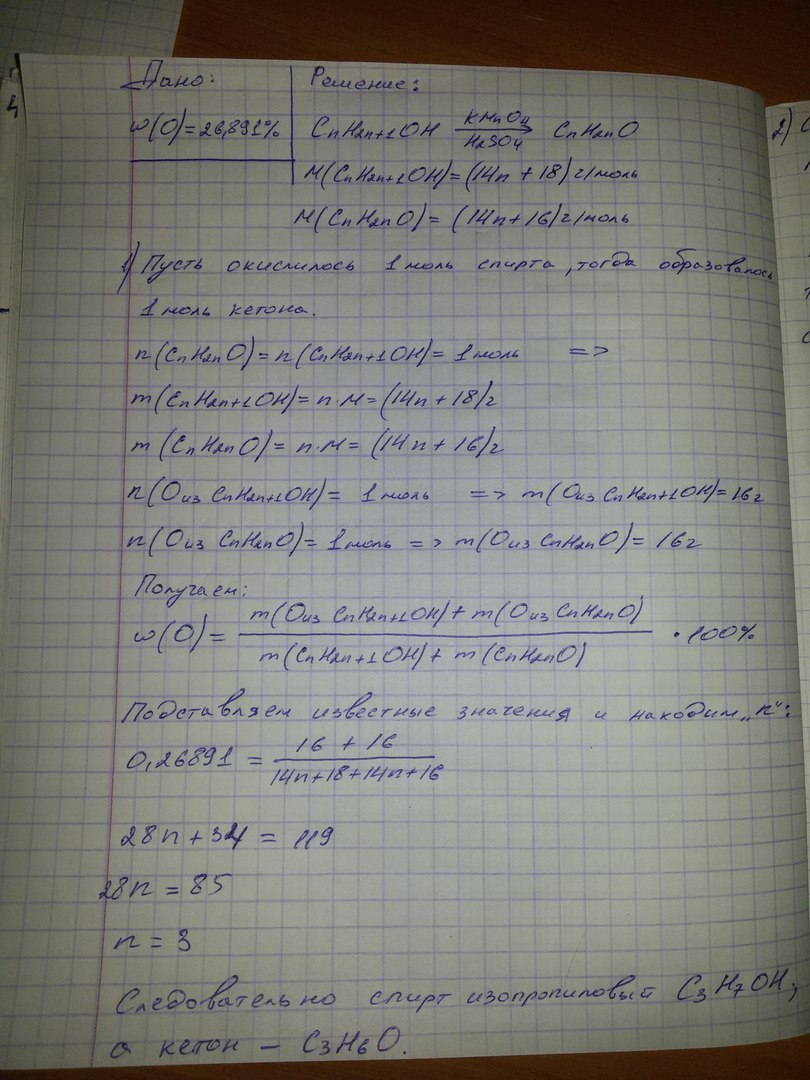 Дано:
Решение:
w(O)=26,891%
CnH2n+1OH KMnO4 H2SO4 → CnH2nO
M(CnH2n+1OH)=(14n+18)г/моль
M(CnH2nO)=(14n+16)г/моль
1) Пусть окислилось 1 моль спирта, тогда образовалось
1 моль кетона.
n(CnH2nO)=n(CnH2n+1OH)=1 моль =>
m(CnH2n+1OH)=n·M=(14n+18)г
m(CnH2nO)=n·M=(14n+16)г
n(O из CnH2n+1OH)=1 моль => m(O из CnH2n+1OH)=16г
n(O из CnH2nO)=1 моль => m(O из CnH2nO)=16г
Получаем:
w(O)= m(O из CnH2n+1OH)+m(O из CnH2nO) / m(CnH2n+1OH)+m(CnH2nO) ·100%
Подставляем известные значения и находим „n":
0,26891 = 16+16 / 14n+18+14n+16
28n+34=119
28n=85
n=3
Следовательно спирт изопропиловый C3H7OH,
а кетон – C3H6O.
2)